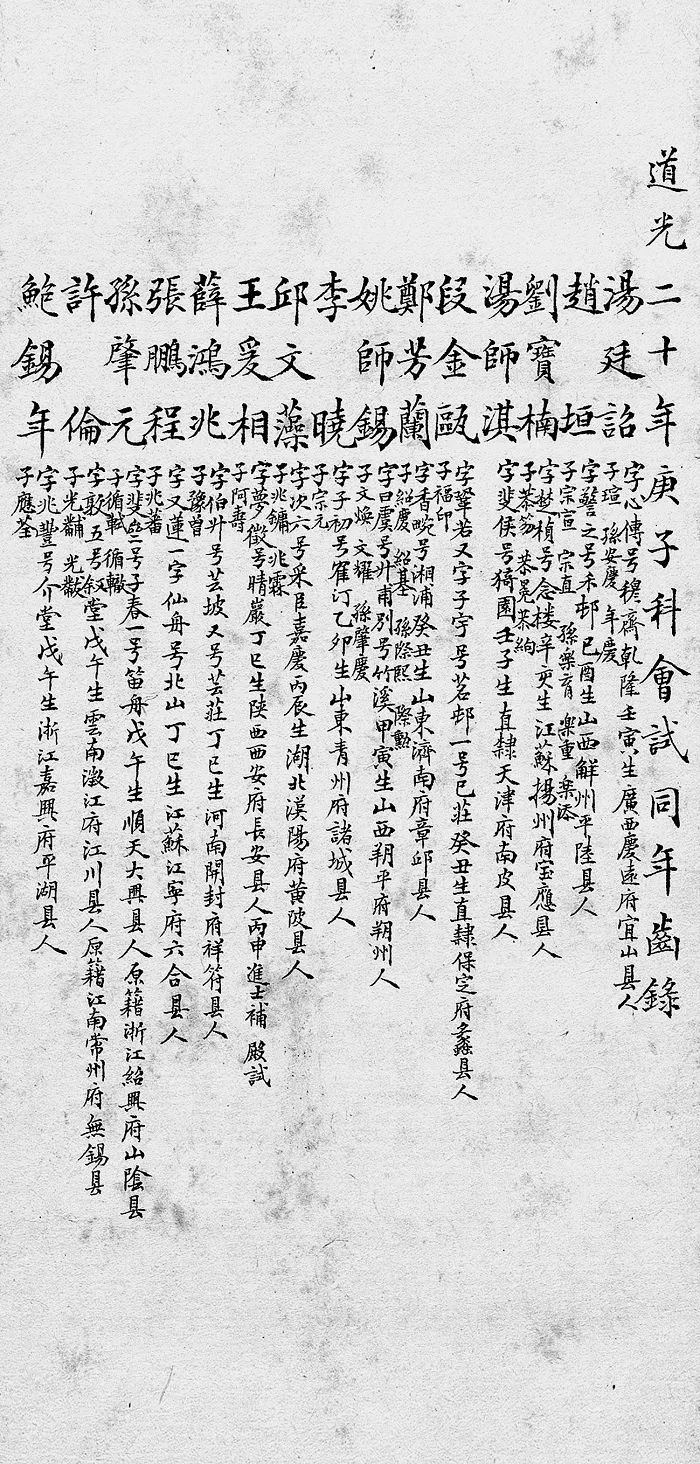 道光二十年庚子科會試同年齒錄
湯廷詔
字心傳号穆齋乾隆壬寅生廣西慶遠府宜山县人
子瑄 孫安慶 年慶
趙垣
字之号未邨己酉生山西解州平陸县人
子宗宣 宗直 孫樂育 樂重 樂添
劉寶楠
字楚楨号念楼辛亥生江蘇揚州府宝應县人
子恭 恭冕 恭絢
湯師淇
字斐侯号猗園壬子生直隸天津府南皮县人
段金甌
字鞏若又字子宇号茗邨一号已莊癸丑生直隸保定府蠡县人
子福印
鄭芳蘭
字香畹号湘浦癸丑生山東濟南府章邱县人
子紹慶 紹基 孫際熙 際勲
姚師錫
字曰虞号廾甫別号竹溪甲寅生山西朔平府朔州人
子文煥 文耀 孫肇慶
李曉
字子初号寉汀乙卯生山東青州府諸城县人
子宗元
邱文藻
字次六号采臣嘉慶丙辰生湖北漢陽府黄陂县人
子兆鏞 兆霖
王爰相
字夢徵号晴巖丁巳生陝西西安府長安县人丙申進士補 殿試
子阿壽
薛鴻兆
字伯廾号芸坡又号芸莊丁巳生河南開封府祥符县人
子豫曾
張鵬程
字又蓮一字仙舟号北山丁巳生江蘇江寧府六合县人
子兆蕃
孫肇元
字斐叁号子春一号笛舟戊午生順天大興县人原籍浙江紹興府山陰县
子循軾 循轍
許倫
字敦五号叙堂戊午生雲南澂江府江川县人原籍江南常州府無錫县
子光黼 光黻
鮑錫年
字兆豐号介堂戊午生浙江嘉興府平湖县人
子應荃